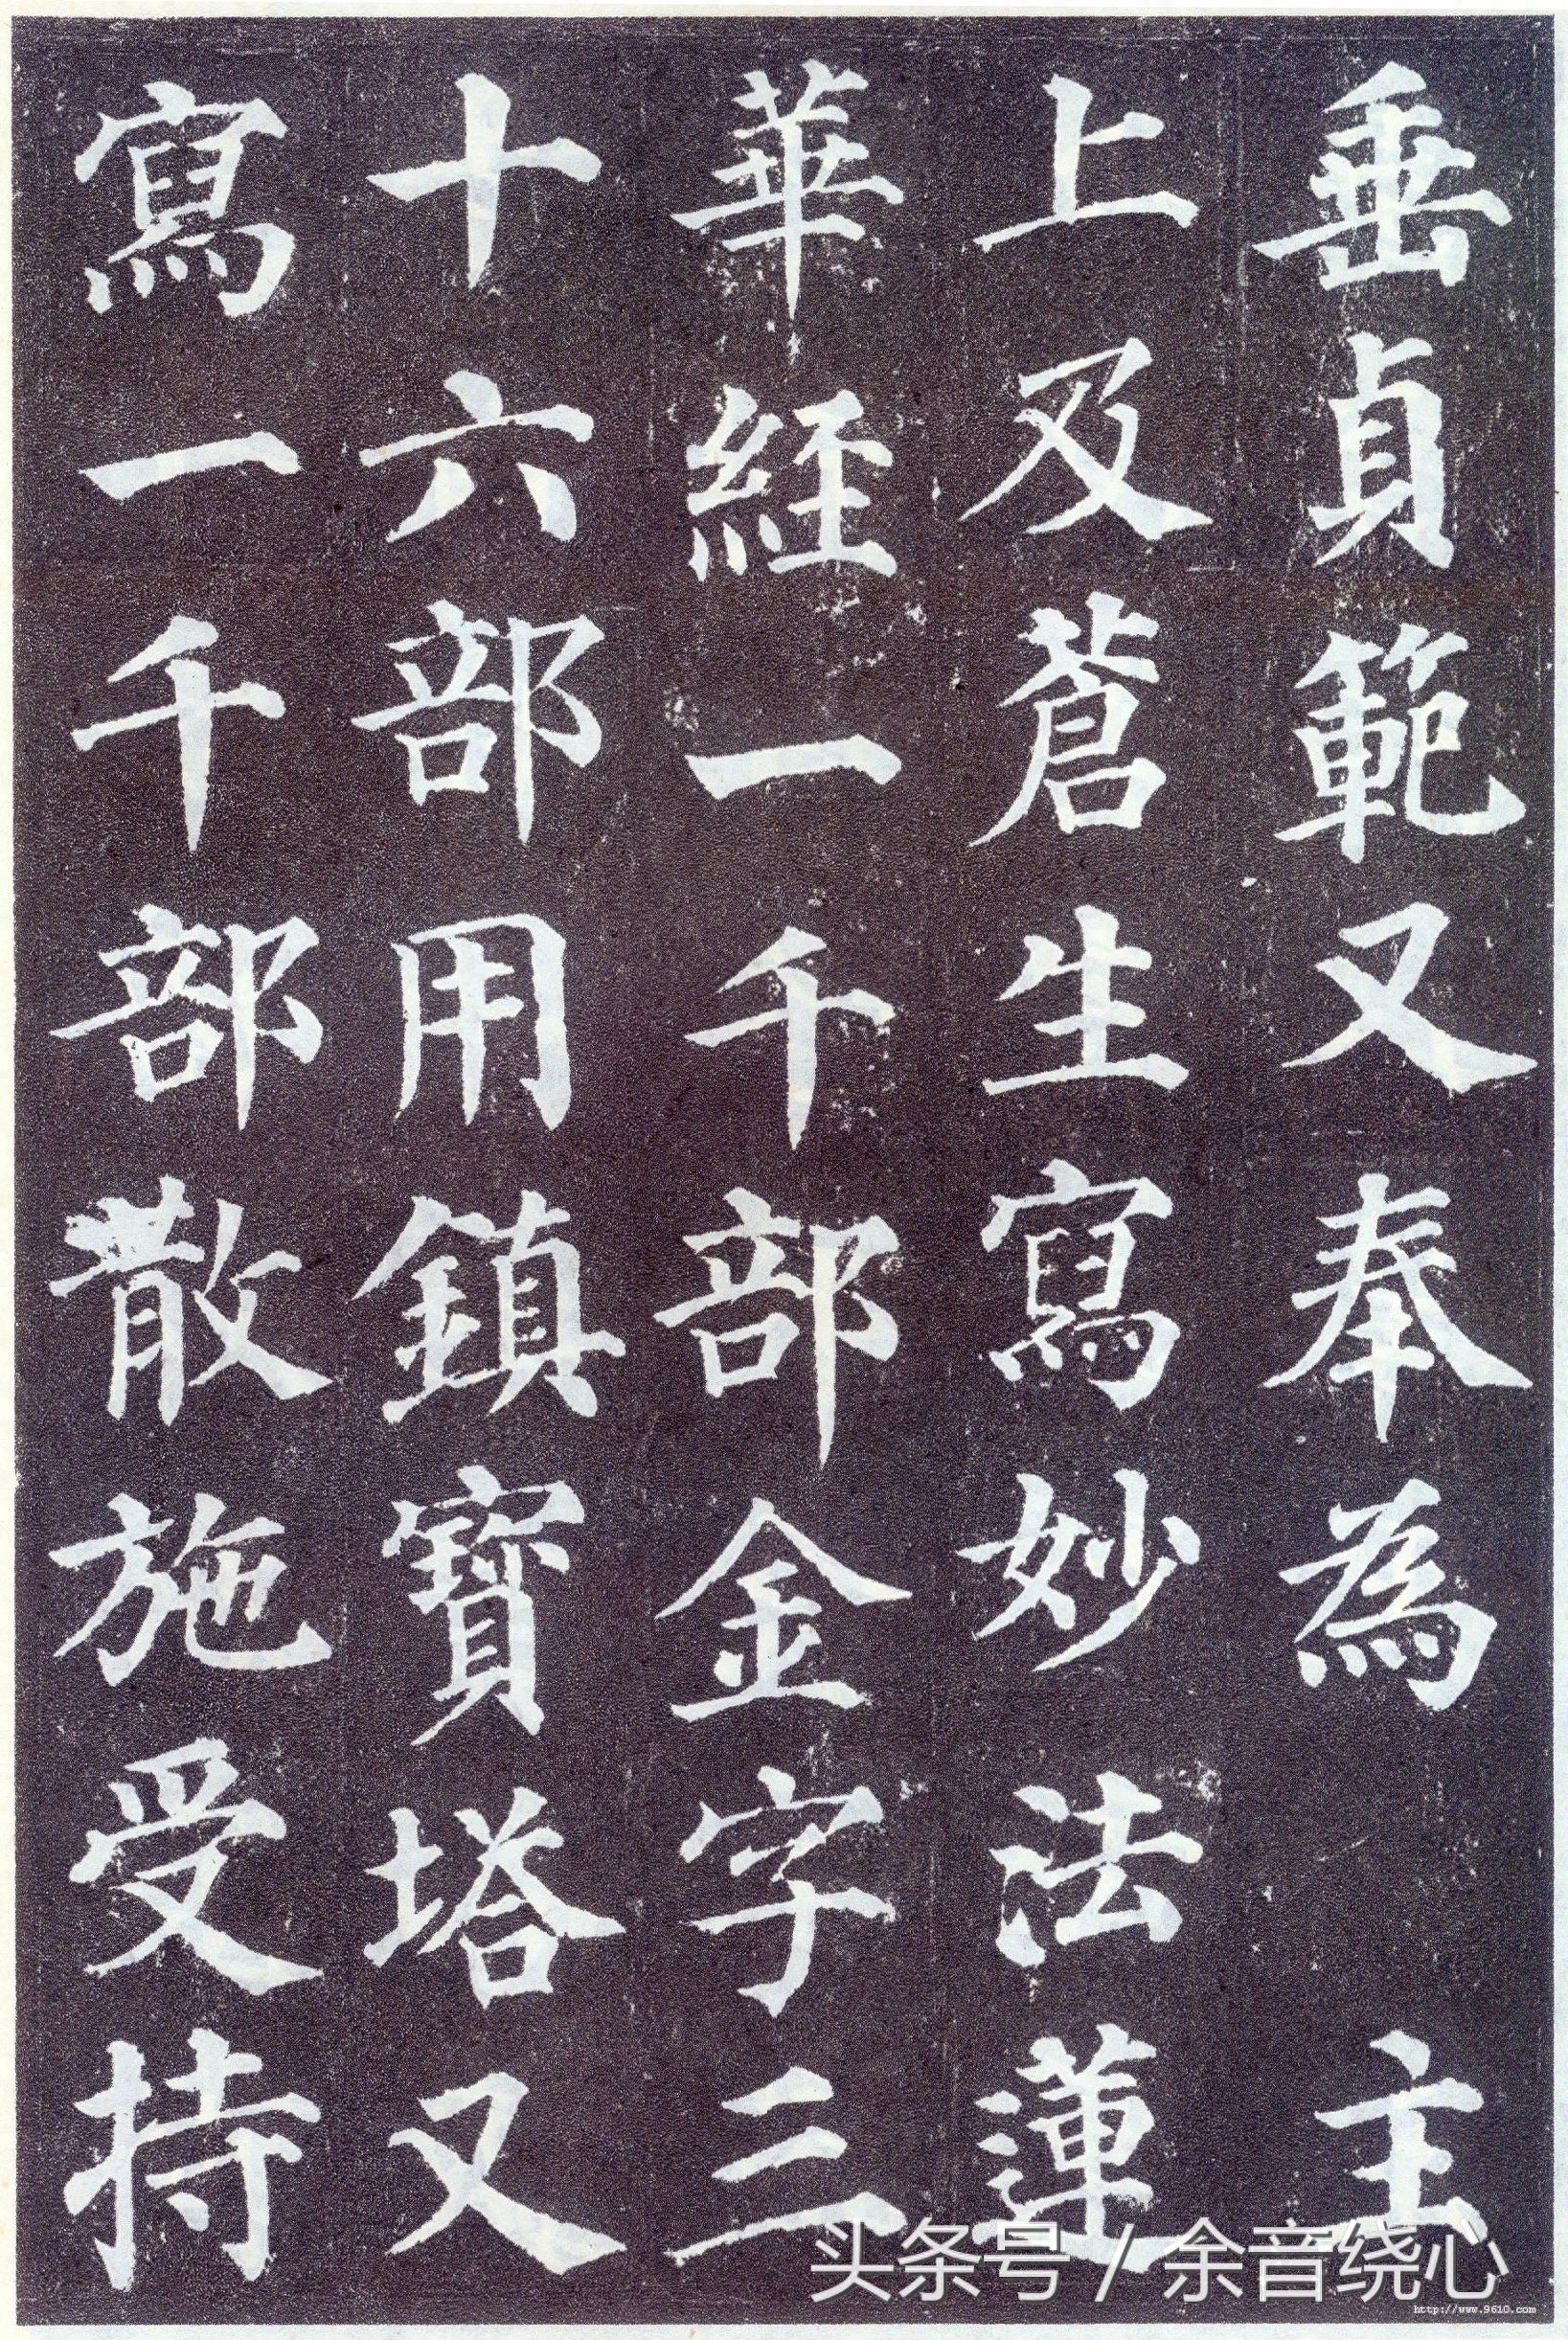 垂貞範又奉為 主
上及蒼生寫妙法蓮
華經一千部金字三
十六部用鎮寶塔又
寫一千部散施受持
头条号 / 余音绕心
http://www.9610.com